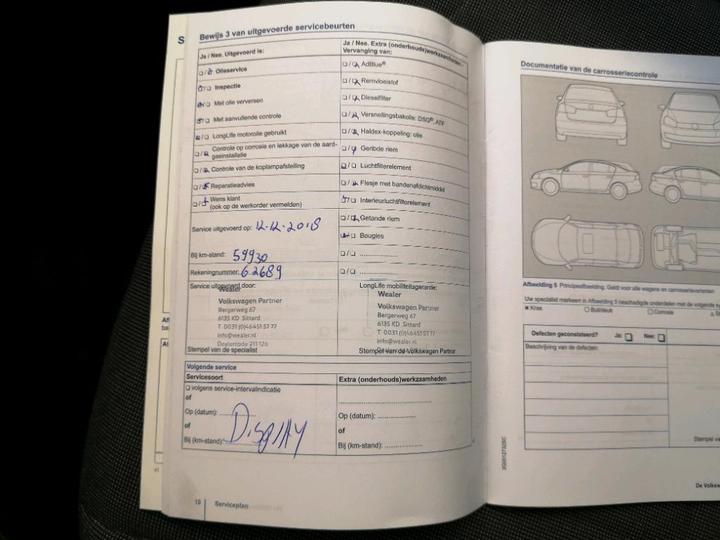 S
Bewijs 3 van uitgevoerde servicebeurten
Ja / Nee. Uitgevoerd is:
Olieservice
Inspectie
Met olie verversen
Met aanvullende controle
LongLife motorolie gebruikt
Controle op corrosie en lekkage van de aard-
gasinstallatie
Controle van de koplampafstelling
Reparatieadvies
Wens klant
(ook op de werkorder vermelden)
Service uitgevoerd op: 12-12-2018
Bij km-stand: 59930
Rekeningnummer: 62689
Service uitgevoerd door:
Wealer
Volkswagen Partner
Bergerweg 67
6135 KD Sittard
T 0031(0)464515777
info@wealer.nl
Dealercode 211126
Stempel van de specialist
Ja / Nee. Extra (onderhouds)werkzaamheden
Vervanging van:
AdBlue®
Remvloeistof
Dieselfilter
Versnellingsbakolie: DSG®, ATF
Haldex-koppeling: olie
Geribde riem
Luchtfilterelement
Flesje met bandenafdichtmiddel
Interieurluchtfilterelement
Getande riem
Bougies
LongLife mobiliteitsgarantie:
Wealer
Volkswagen Partner
Bergerweg 67
6135 KD Sittard
T 0031(0)464515777
info@wealer.nl
Stempel van de Volkswagen Partner
Volgende service
Servicesoort
volgens service-intervalindicatie
of
Op (datum):
of
Bij (km-stand):
Display
Extra (onderhouds)werkzaamheden
Op (datum):
of
Bij (km-stand):
18
Serviceplan
Documentatie van de carrosseriecontrole
Afbeelding 5 Principeafbeelding. Geldt voor alle wagens en carrosserievarianten
Uw specialist markeert in Afbeelding 5 beschadigde onderdelen met de volgende
Kras
Buil/deuk
Corrosie
Defecten geconstateerd?
Ja:
Nee:
Beschrijving van de defecten:
De Volksw